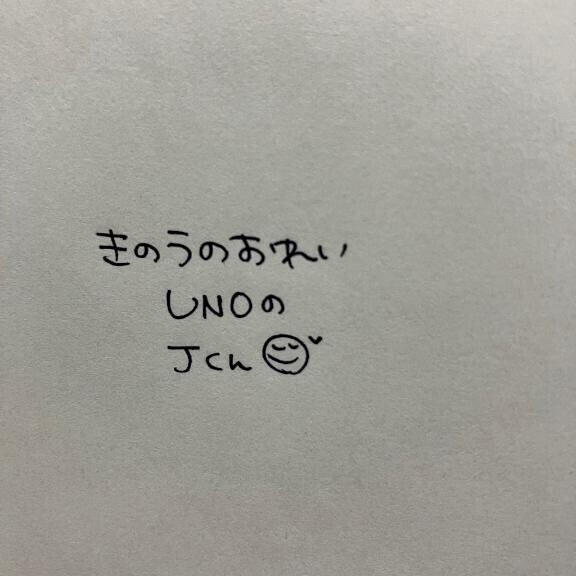 きのうのおれい
UNOの
Jくん